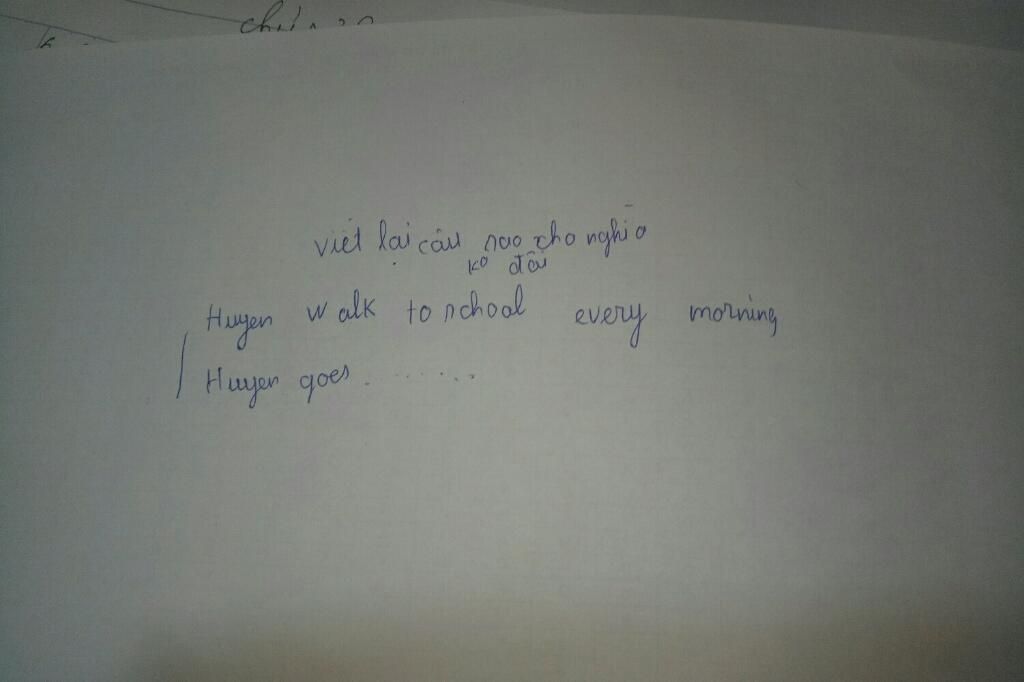 viết lại câu sao cho nghĩa
ko đổi
Huyen walk to school every morning
Huyen goes ........